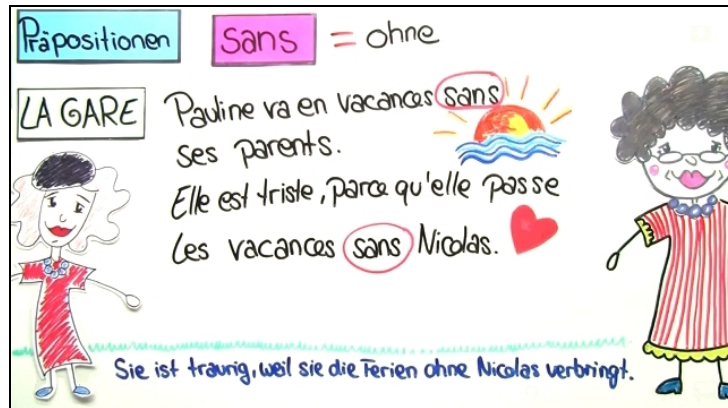 Präpositionen sans = ohne
LA GARE
Pauline va en vacances sans
ses parents.
Elle est triste, parce qu'elle passe
les vacances sans Nicolas.
Sie ist traurig, weil sie die Ferien ohne Nicolas verbringt.